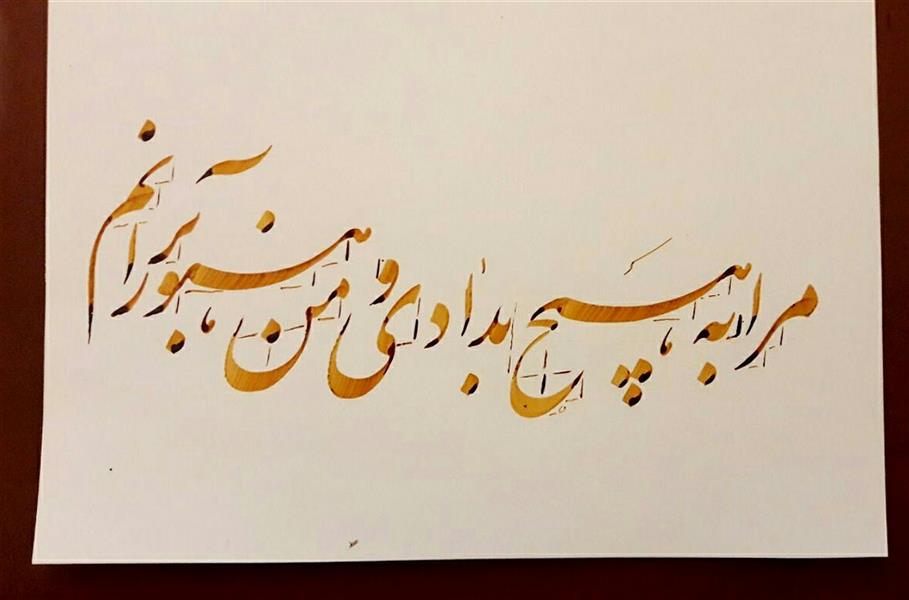 مرا به هیچ بدادی و من هنوز بر آنم